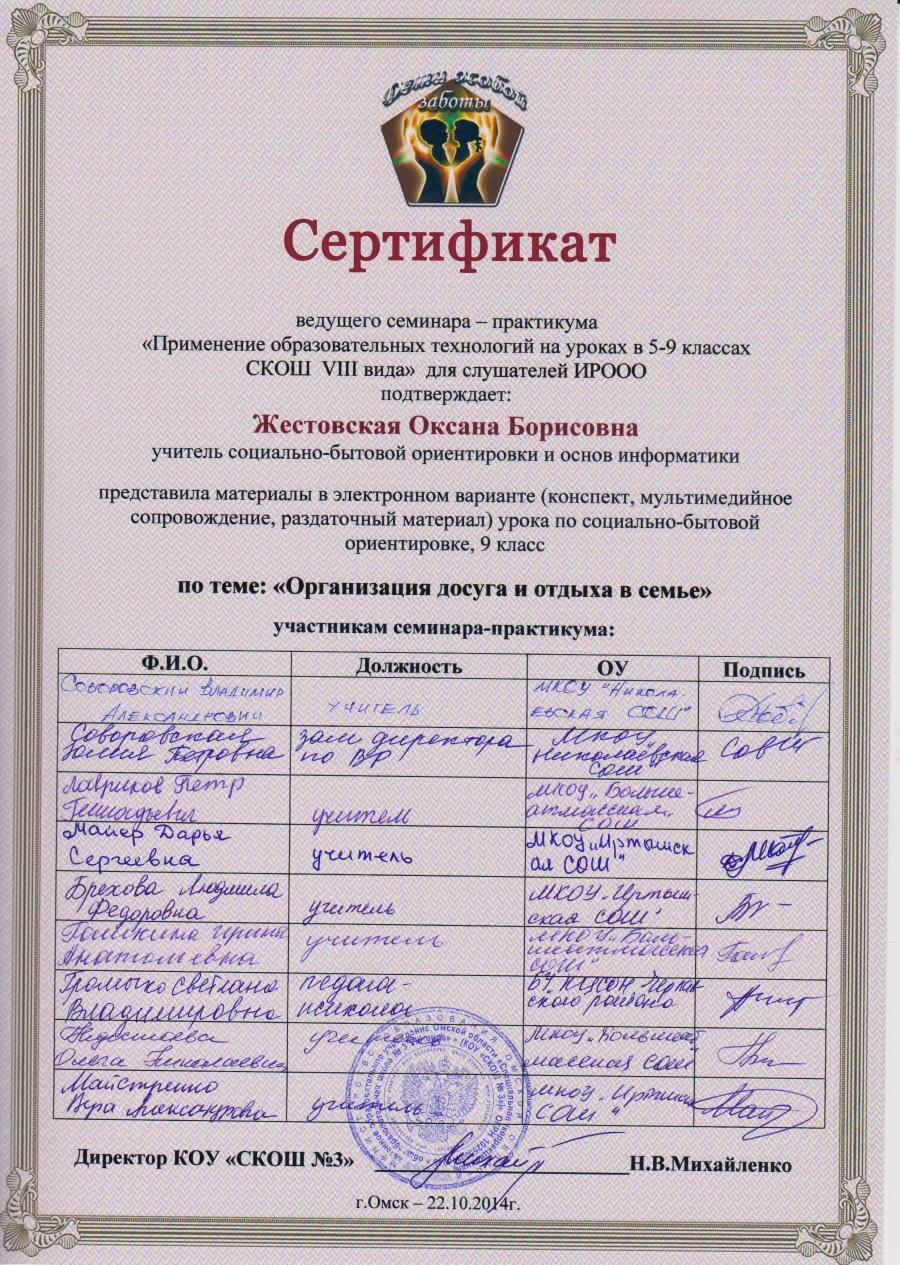 Дети особой
заботы
Сертификат
ведущего семинара – практикума
«Применение образовательных технологий на уроках в 5-9 классах
СКОШ VIII вида» для слушателей ИРООО
подтверждает:
Жестовская Оксана Борисовна
учитель социально-бытовой ориентировки и основ информатики
представила материалы в электронном варианте (конспект, мультимедийное
сопровождение, раздаточный материал) урока по социально-бытовой
ориентировке, 9 класс
по теме: «Организация досуга и отдыха в семье»
участникам семинара-практикума:
Ф.И.О. Должность ОУ Подпись
Соворовский Владимир
Александрович
учитель
МКОУ "Никола-
евская СОШ"
Соворовская
Юлия Петровна
зам директора
по ВР
МКОУ
Николаевская
СОШ"
Лавриков Петр
Геннадьевич
учитель
МКОУ „Больше-
атмасская
СОШ
Майер Дарья
Сергеевна
учитель
МКОУ „Иртышск
ая СОШ"
Брехова Людмила
Федоровна
учитель
МКОУ „Иртыш-
ская СОШ"
Ирина
Анатольевна
учитель
МКОУ „Боль-
шеатмасская
СОШ"
Громыко Светлана
Владимировна
педагог-
психолог
ского района
Ольга Николаевна
учитель
МКОУ „Большеат
масская СОШ"
Майстренко
Вера Александровна
учитель
МКОУ „Иртышская
СОШ"
Директор КОУ «СКОШ №3» Н.В.Михайленко
г.Омск – 22.10.2014г.